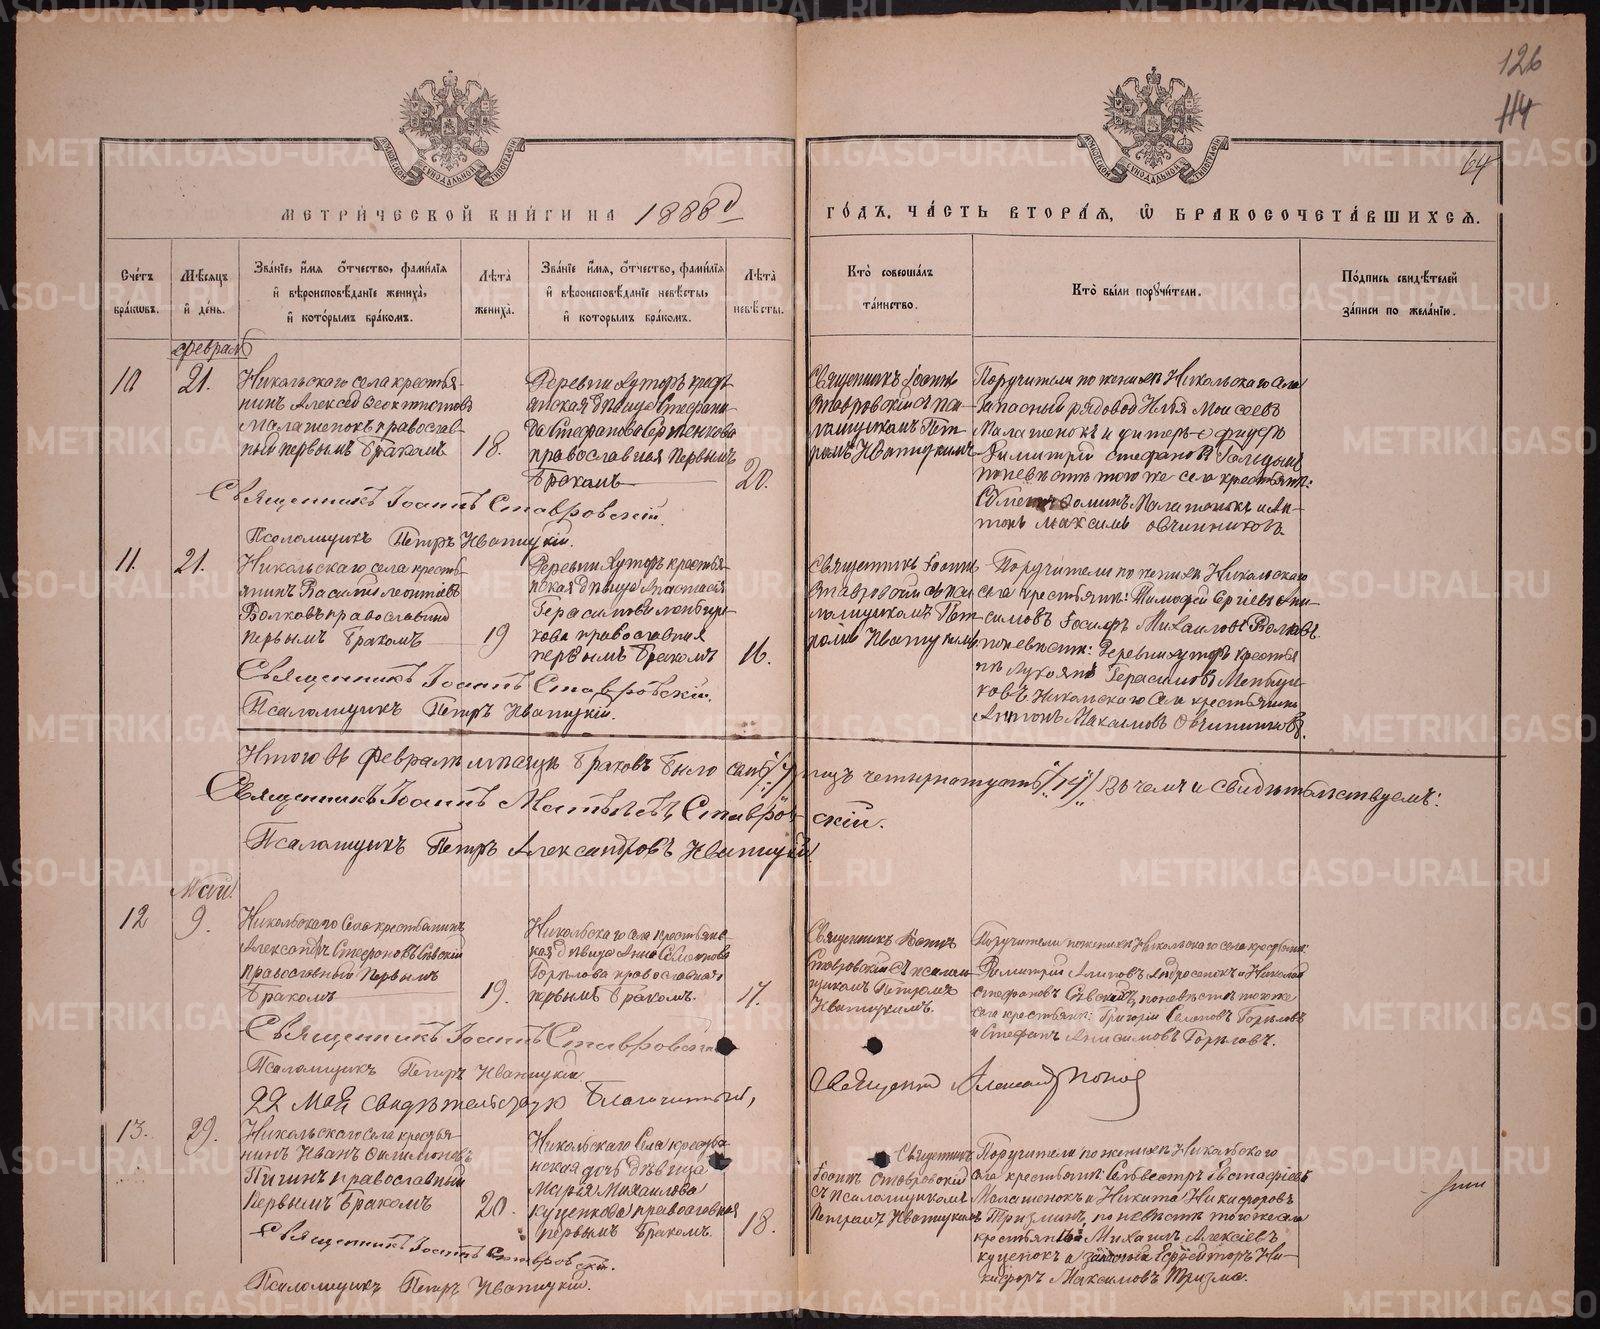 126
114
64
МЕТРИЧЕСКОЙ КНИГИ НА 1888й
ГОДЪ, ЧАСТЬ ВТОРАЯ, Ѡ БРАКОСОЧЕТАВШИХСЯ.
Счетъ браковъ.
Мѣсяцъ и день.
Званіе, имя отчество, фамилія и вѣроисповѣданіе жениха, и которымъ бракомъ.
Лѣта жениха.
Званіе имя, отчество, фамилія и вѣроисповѣданіе невѣсты, и которымъ бракомъ.
Лѣта невѣсты.
Кто совершалъ таинство.
Кто были поручители.
Подпись свидѣтелей записи по желанію.
Февраль
10
21.
Никольскаго села крестья-
нинъ Алексей Феоктистовъ
Малашенокъ православ-
ный первымъ бракомъ
18.
Деревни Хуторъ крест-
янская дѣвица Стефани-
да Стефанова
православная первымъ
бракомъ
20.
Священникъ Іоаннъ
Ставровскій с пса-
ломщикомъ Пет-
ромъ Иваницкимъ
Поручители по женихѣ Никольскаго села
Запасный рядовой Илья Моисеевъ
Малашенокъ и
Димитрій Стефановъ
по невѣстѣ того же села крестьяне:
Фоминъ Малашенокъ и Ан-
тонъ Максимъ Овчинниковъ
Священникъ Іоаннъ Ставровскій.
Псаломщикъ Петръ Иваницкій.
11.
21.
Никольскаго села кресть-
янинъ Василій Леонтіевъ
Волковъ православный
первымъ бракомъ
19
Деревни Хуторъ крестья-
нская дѣвица Анастасія
Герасимова Меньщи-
кова православная
первымъ бракомъ
16.
Священникъ Іоаннъ
Ставровскій с пса
ломщикомъ Пет
ромъ Иваницкимъ
Поручители по женихѣ Никольскаго
села крестьяне: Тимофей Сергіевъ Ани-
симовъ Іосифъ Михаиловъ Волковъ
по невѣстѣ: Деревни хуторъ крестья
Герасимовъ Меньщи-
ковъ Никольскаго села крестьянинъ
Антонъ Макаимовъ Овчинниковъ.
Священникъ Іоаннъ Ставровскій.
Псаломщикъ Петръ Иваницкій.
Итого въ Февралѣ мѣсяцѣ браковъ было семь /7/ лицъ четырнатцать /14/ въ чемъ и свидѣтельствуемъ:
Священникъ Іоаннъ Матвѣевъ Ставров-скій.
Псаломщикъ Петръ Александровъ Иваницкій
Май
12
9.
Никольскаго села крестьянинъ
Александръ Стефановъ Сѣвскій
православный первымъ
бракомъ
19.
Никольскаго села крестьянс-
кая дѣвица Анна Семенова
Горѣлова православная
первымъ бракомъ.
17.
Священникъ Іоаннъ
Ставровскій с псалом-
щикомъ Петромъ
Иваницкимъ.
Поручители по женихѣ Никольскаго села крестьяне:
Димитрій Андросенокъ и Николай
Стефановъ Сѣвскій, по невѣстѣ того же
села крестьяне: Григорій Семеновъ Горѣловъ
и Стефанъ Анисимовъ Горѣловъ.
Священникъ Іоаннъ Ставровскій
Псаломщикъ Петръ Иваницкій
22 Мая свидѣтельствую Благочинный, Священникъ Александръ Поповъ
13.
29.
Никольскаго села крестья-
нинъ Иванъ Филимоновъ
Пигинъ православный
первымъ бракомъ
20.
Никольскаго села крестья-
нская дочь дѣвица
Марья Михаилова
Куценкова православная
первымъ бракомъ.
18.
Священникъ
Іоаннъ Ставровскій
съ псаломщикомъ
Петромъ Иваницкимъ
Поручители по женихѣ Никольскаго
села крестьяне: Сельвестръ Евстафіевъ
Малашенокъ и Никита Никифоровъ
по невѣстѣ того же села
крестьяне Михаилъ Алексіевъ
Куценокъ и запасный Ефрейторъ Ни-
кифоръ Максимовъ Тризна.
Священникъ Іоаннъ Ставровскій.
Псаломщикъ Петръ Иваницкій.
METRIKI.GASO-URAL.RU